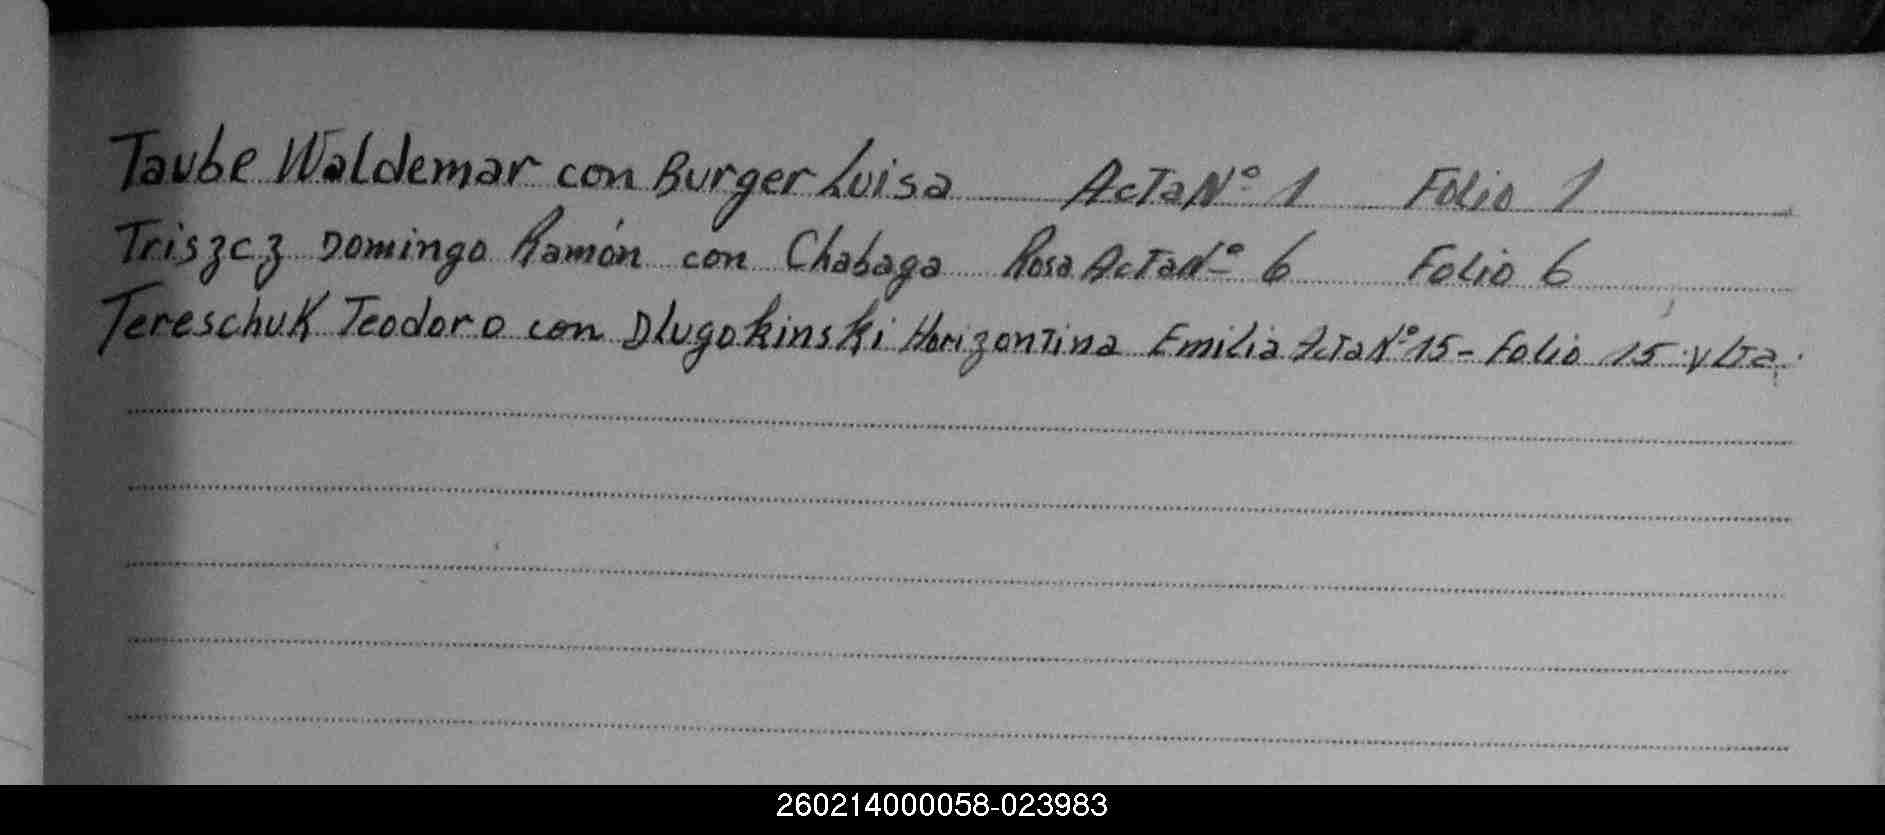 Taube Waldemar con Burger Luisa Acta Nº 1 Folio 1
Triszcz Domingo Ramón con Chabaga Rosa Acta Nº 6 Folio 6
Tereschuk Teodoro con Dlugokinski Horizontina Emilia Acta Nº 15 - Folio 15 vlta.
260214000058-023983